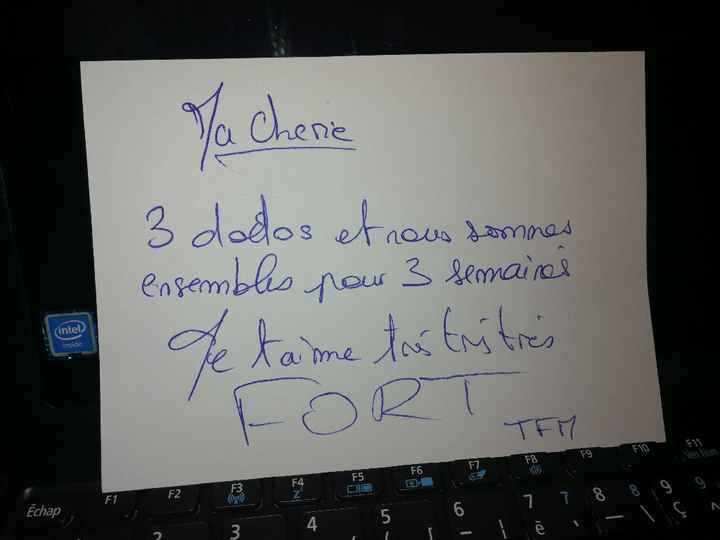 Ma Cherie
3 dodos et nous sommes
ensembles pour 3 semaines
Je t'aime très très très
FORT
TFM
intel
inside
Échap F1 F2 F3 F4 F5 F6 F7 F8 F9 F10 F11
2 3 4 5 6 7 7 8 8 9 9